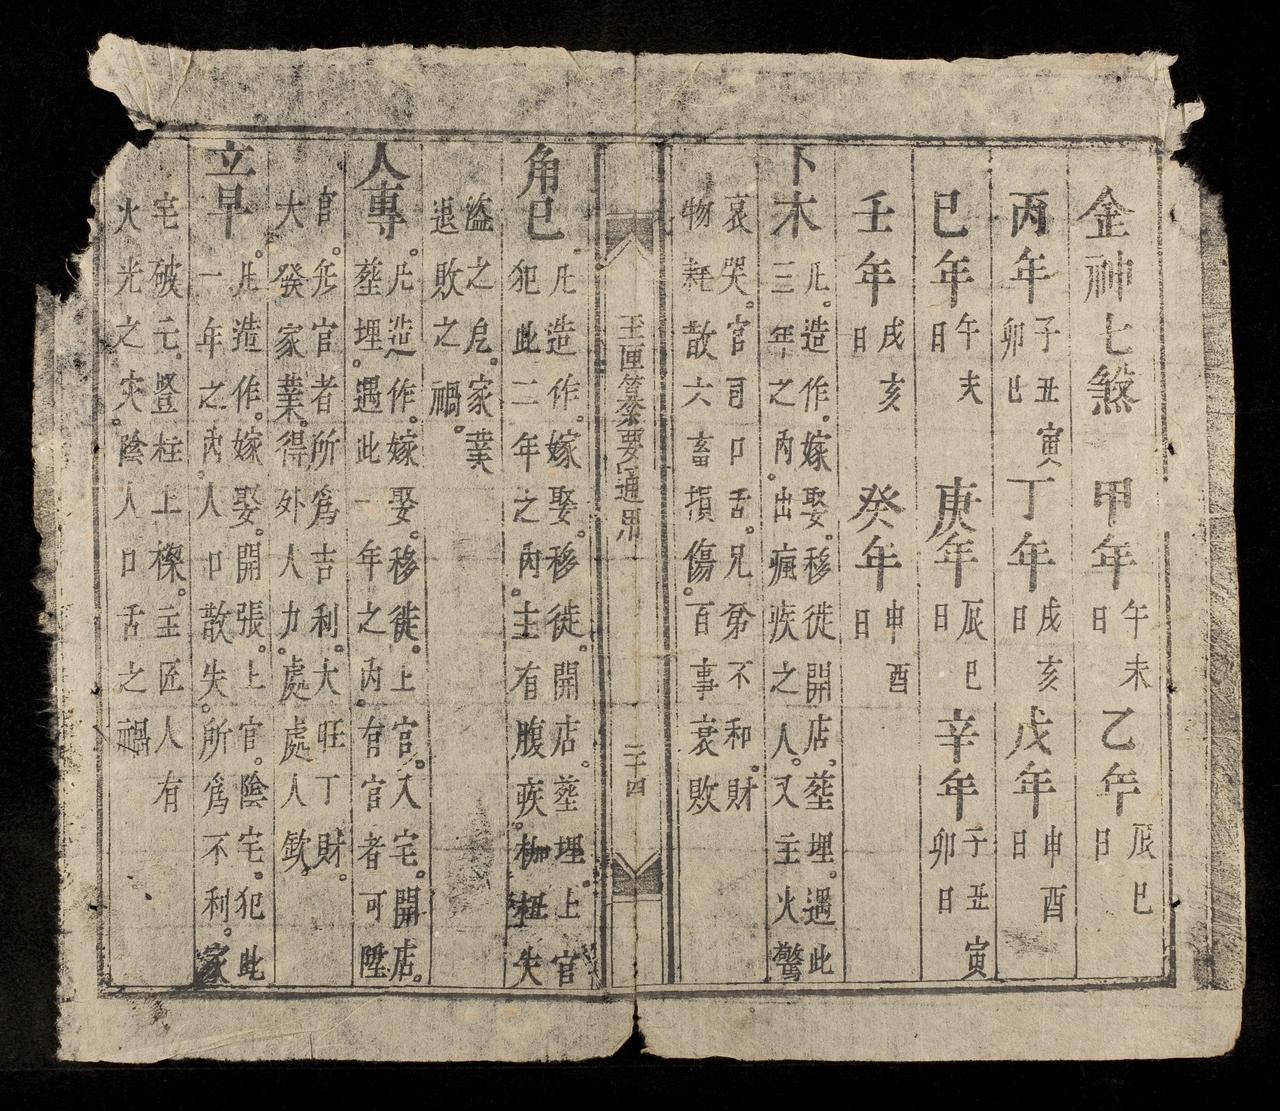 金神七煞 甲年午未日 乙年辰巳日
丙年子丑寅卯巳 丁年戌亥日 戊年申酉日
巳年午夫日 庚年辰巳日 辛年子丑寅卯日
壬年戌亥日 癸年申酉日
卜木 凡造作。嫁娶。移徙開店。塟埋。遇此
三年之內。出瘋疾之人。又主火驚
哀哭。官司口舌。兄弟不和。財
物耗散六畜損傷。百事衰敗
玉匣纂要通用 二十四
角巳 凡造作。嫁娶。移徙。開店。塟埋。上官
犯此二年之內。主有腹疾。枷杻失
盜之危。家業
退敗之禍。
人專 凡造作。嫁娶。移徙。上官。入宅。開店。
塟埋。遇此一年之內。有官者可陞
官。無官者所爲吉利。大旺丁財。
大發家業。得外人力。處處人欽。
立早 凡造作。嫁娶。開張。上官。陰宅。犯此
一年之內。人口散失。所爲不利。家
宅破元。豎柱上樑。主匠人有
火光之灾。陰人口舌之禍